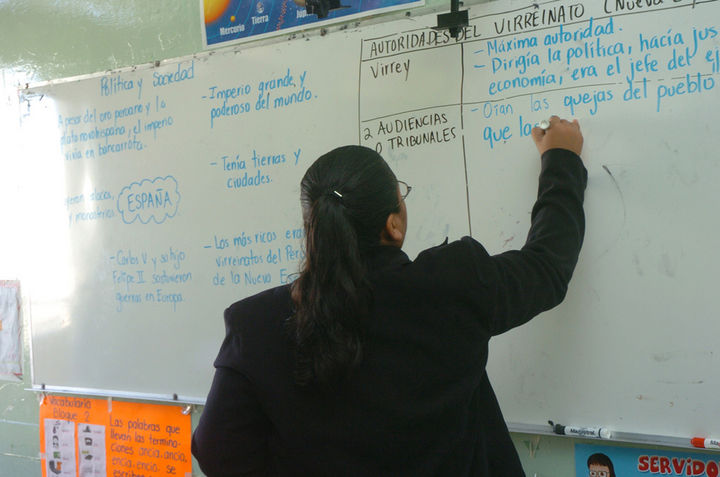 Mercurio
Tierra
Política y Sociedad
A pesar del oro peruano y la
plata novohispana, el imperio
vivía en bancarrota.
y monasterios.
ESPAÑA
- Carlos V y su hijo
Felipe II sostuvieron
guerras en Europa.
- Imperio grande, y
poderoso del mundo.
- Tenía tierras y
ciudades.
- Los más ricos
virreinatos del
de la Nueva
AUTORIDADES DEL VIRREINATO (Nueva
Virrey
- Máxima autoridad.
- Dirigía la política, hacía
economía, era el jefe del
2 AUDIENCIAS
O TRIBUNALES
- Oían las quejas del pueblo
que
Vocabulario
Bloque 2
Las palabras que
llevan las termina-
ciones ancia, ancia,
encia, encio, se
Magistral
SERVIDO